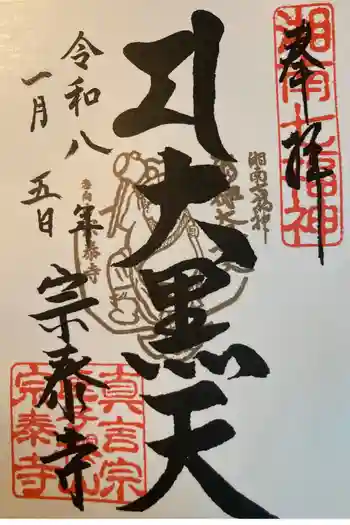 奉拝
湘南七福神
大黒天
湘南七福神
宗泰寺
令和八年
一月五日
宗泰寺
真言宗
宗泰寺